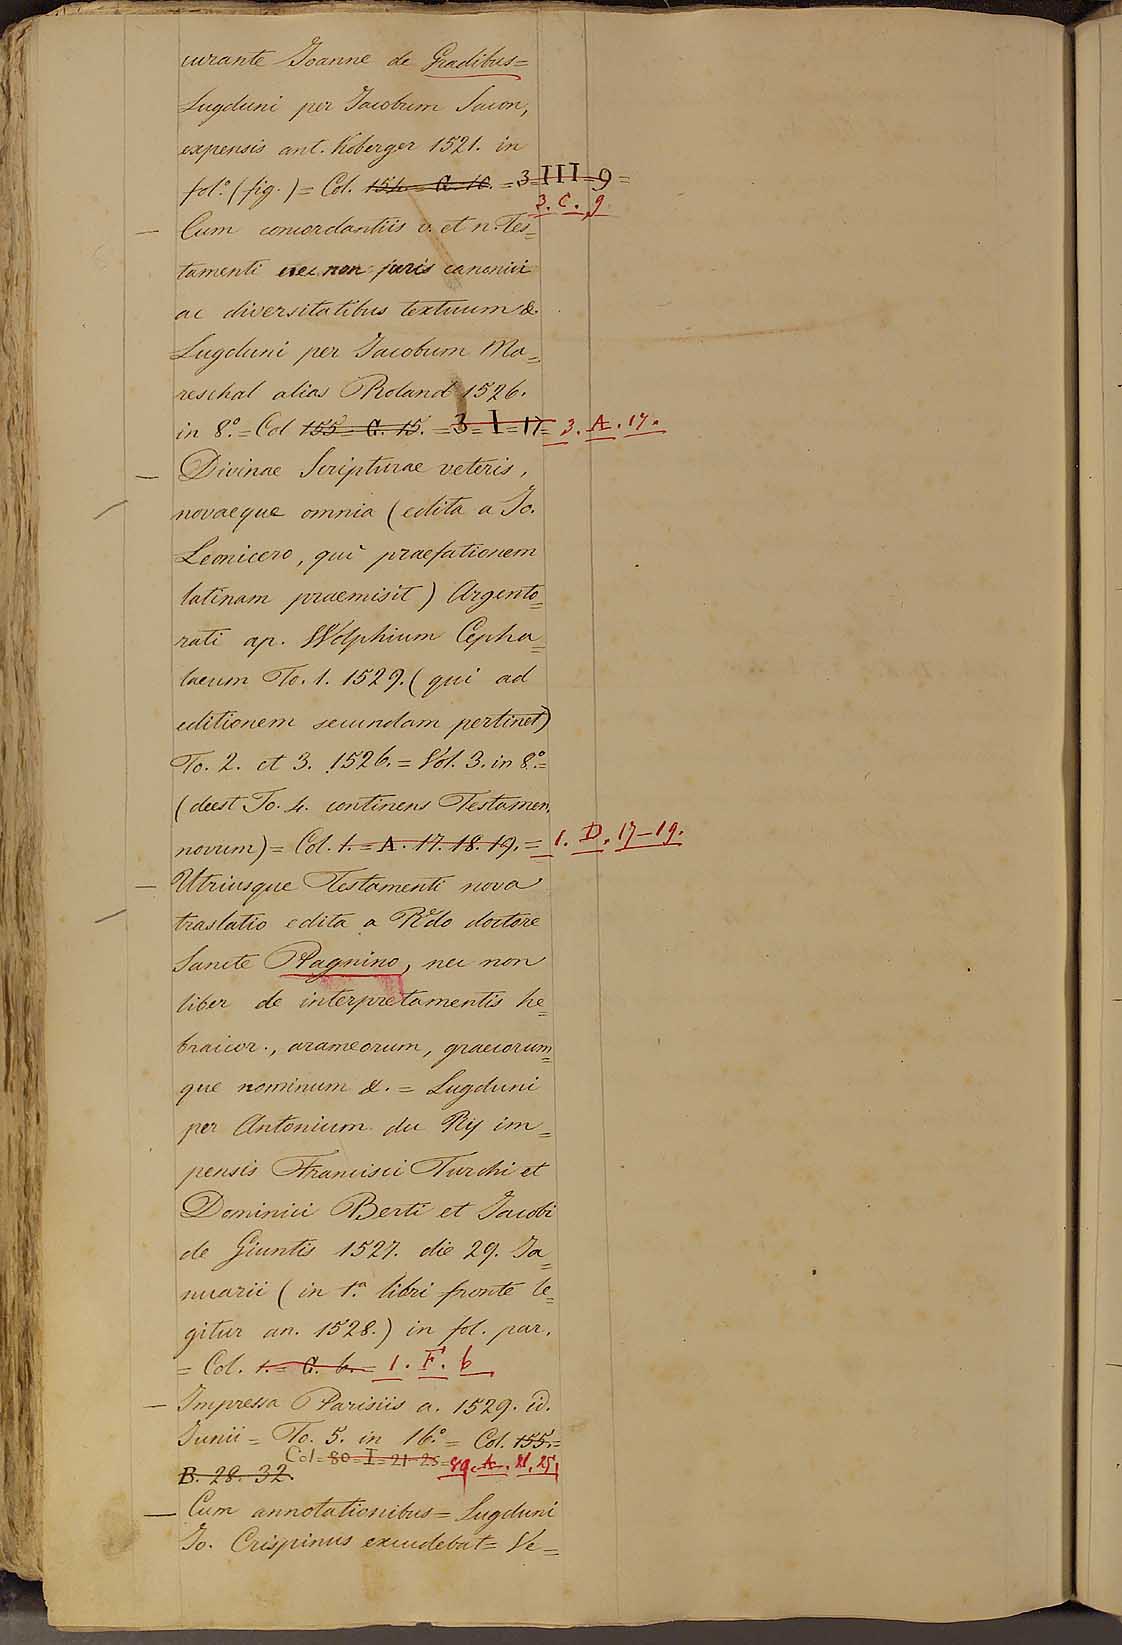 curante Joanne de Gradibus=
Lugduni per Jacobum Sacon,
expensis ant. Koberger 1521. in
fol.º (fig.) = Col. 154. = G. 10. = 3 = III = 9 =
3. C. 9
— Cum concordantiis v. et n. Tes=
tamenti nec non juris canonici
ac diversitatibus textuum &.
Lugduni per Jacobum Ma=
reschal alias Roland 1526.
in 8.º = Col 155 = G. 15. = 3 = I = 17 = 3. A. 17.
— Divinae Scripturae veteris,
novaeque omnia (edita a Jo.
Leonicero, qui praefationem
latinam praemisit) Argento=
rati ap. Wolphium Cepha=
laeum To. 1. 1529. (qui ad
editionem secundam pertinet)
To. 2. et 3. 1526. = Vol. 3. in 8.º =
(deest To. 4. continens Testamen.
novum) = Col. 1. = A. 17. 18. 19. = 1. D. 17-19.
— Utriusque Testamenti nova
traslatio edita a Rdo doctore
Sancte Pagnino, nec non
liber de interpretamentis he=
braicor., arameorum, graecorum=
que nominum &. = Lugduni
per Antonium du Ry im=
pensis Francisci Turchi et
Dominici Berti et Jacobi
de Giuntis 1527. die 29. Ja=
nuarii (in 1.ª libri fronte le=
gitur an. 1528.) in fol. par.
= Col. 1. = G. 6. = 1. F. 6
— Impressa Parisiis a. 1529. id.
Junii = To. 5. in 16.º = Col. 155. =
Col = 80 = I = 21-25 = 80. A. 21. 25.
B. 28. 32.
— Cum annotationibus = Lugduni
Jo. Crispinus excudebat = Ve=